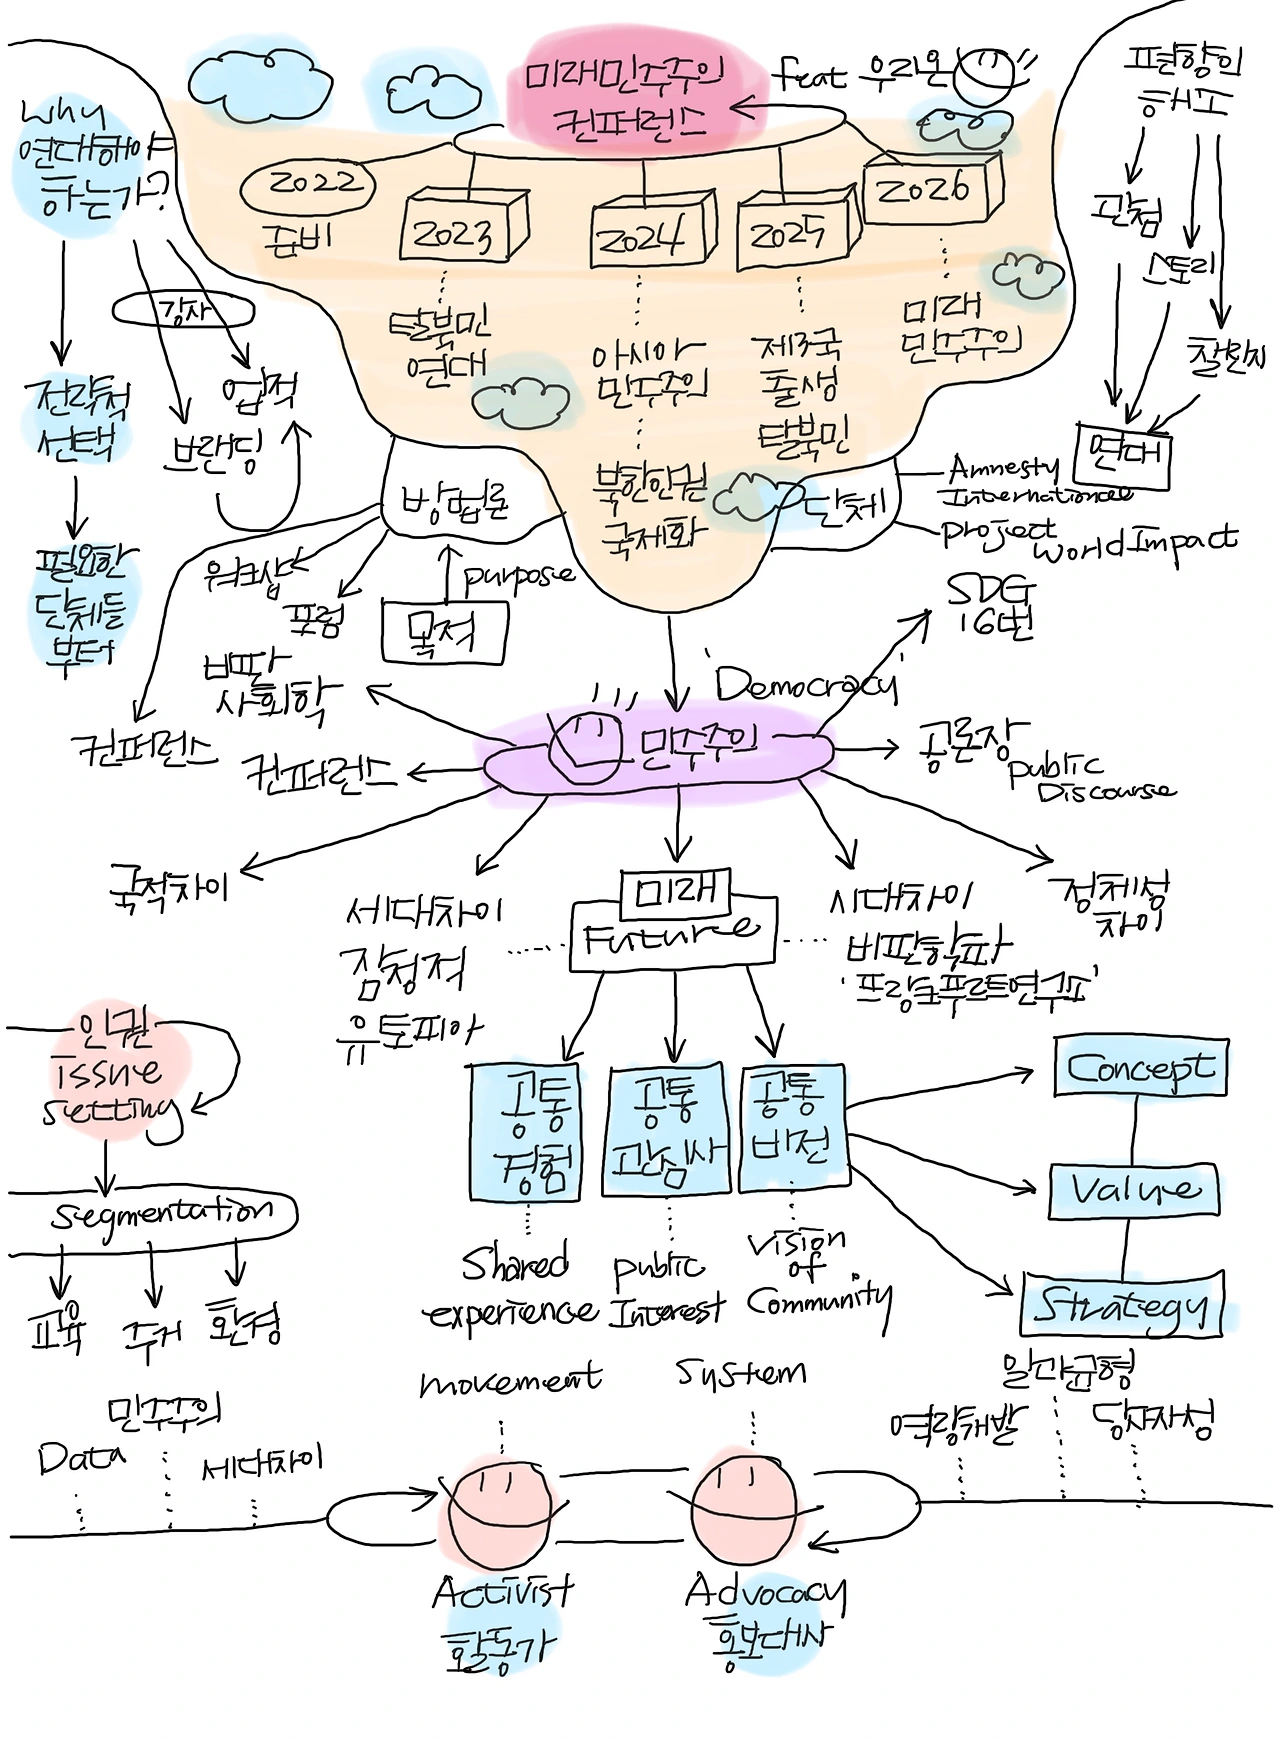 미래민주주의
컨퍼런스
feat 우리온
why
연대해야
하는가?
강사
전략적
선택
업적
브랜딩
필요한
단체들
부터
2022
준비
2023
2024
2025
2026
탈북민
연대
아시아
민주주의
북한인권
국제화
제3국
출생
탈북민
미래
민주주의
편향의
해소
관점
스토리
찰환지
연대
방법론
워크샵
포럼
컨퍼런스
purpose
목적
단체
Amnesty
International
project
World Impact
SDG
16번
'Democracy'
민주주의
비판
사회학
컨퍼런스
공론장
public
Discourse
국적차이
세대차이
잠정적
유토피아
미래
Future
시대차이
비판학파
'프랑크푸르트연구파'
정체성
차이
공통
경험
공통
관심사
공통
비전
Shared
experience
public
Interest
vision
of
Community
Concept
Value
Strategy
인권
issue
setting
segmentation
교육
주거
환경
민주주의
Data
세대차이
movement
System
일과균형
역량개발
당사자성
Activist
활동가
Advocacy
홍보대사